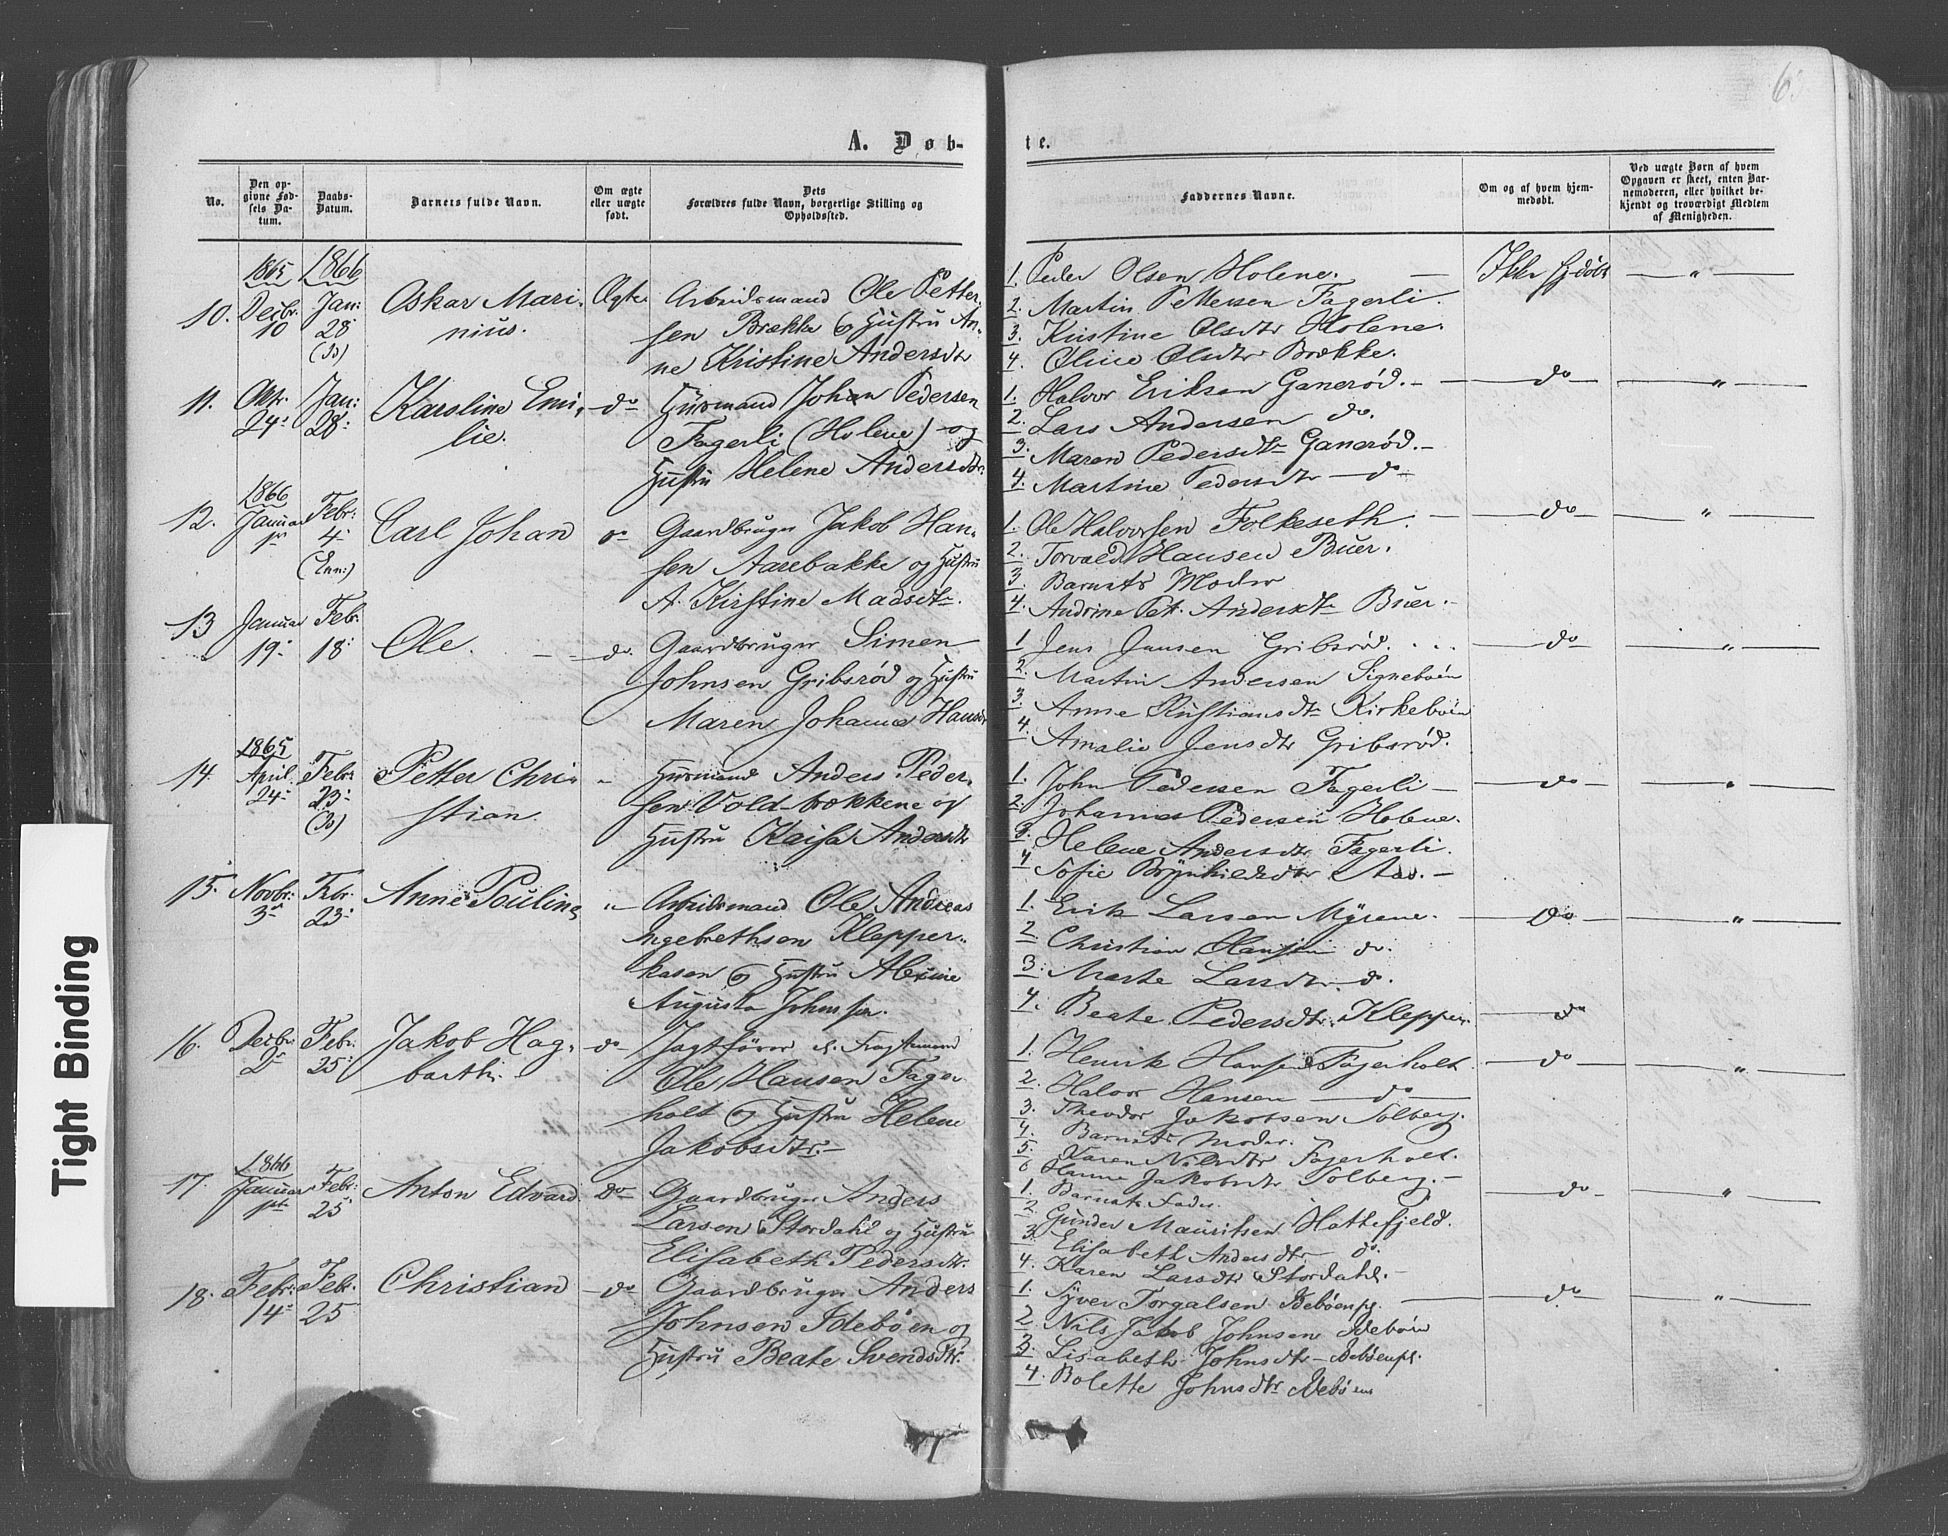 6
A. Døb-
te.
No.
Den op-
givne Fød-
sels Da-
tum.
Daabs-
Datum.
Barnets fulde Navn.
Om ægte
eller uægte
født.
Dets
Forældres fulde Navn, borgerlige Stilling og
Opholdssted.
Faddernes Navne.
Om og af hvem hjem-
medøbt.
Ved uægte Børn af hvem
Opgaven er skeet, enten Bar-
nemoderen, eller hvilket be-
kjendt og troværdigt Medlem
af Menigheden.
1865 1866
10. Decbr. 10 Jan: 28 Oskar Mari-
nius.
Ægte Arbeidsmand Ole Petter-
sen Brække og Hustru An-
ne Kristine Andersdtr
1. Peder Olsen Holene. — Ikke hjdøbt — " —
2. Martin Pettersen Fagerli.
3. Kristine Olsdtr Holene.
4. Oline Olsdtr Brække.
11. Oktr. 24 Jan: 28 Karoline Emi-
lie.
do Husmand Johan Pedersen
Fagerli (Holene) og
Hustru Helene Andersdtr.
1. Halvor Eriksen Ganerød. — do — " —
2. Lars Andersen do.
3. Maren Pedersdtr Ganerød.
4. Martine Pedersdtr — do
1866
12. Januar Febr: 4 Carl Johan
do Gaardbruger Jakob Han-
sen Aarebakke og Hustru
A. Kirstine Madsdtr.
1. Ole Halvorsen Folkeseth. — do — " —
2. Torvald Hansen Buer.
3. Barnets Moder
4. Andrine Pet. Andersdtr Buer.
13 Januar 19 Febr. 18 Ole.
do. Gaardbruger Simen
Johnsen Gribsrød og Hustru
Maren Johanne Hansdtr
1 Jens Jensen Gribsrød. — do — " —
2. Martin Andersen Signebøen
3. Anne Kristiansdtr Kirkebøen
4. Amalie Jensdtr Gribsrød.
1865
14. April 24 Febr 23 Petter Chri-
stian.
" Husmand Anders Peder-
sen Voldbrækkene og
Hustru Kaisa Andersdtr
1. John Pedersen Fagerli — do — " —
2. Johannes Pedersen Holene.
3. Helene Andersdtr Fagerli.
4 Sofie Brynhildsdtr Aas.
15. Novbr. 3 Febr. 23 Anne Pouline
" Arbeidsmand Ole Andreas
Ingebrethsen Klepper-
kasen og Hustru
Augusta Johnsen.
1. Erik Larsen Myrene. — do — " —
2 Christian Hansen do.
3. Marte Larsdtr do.
4. Beate Pedersdtr Klepper. — do
16. Decbr. 2 Febr. 25 Jakob Hag-
barth.
do Jagtfører
Ole Hansen Fager-
holt og Hustru Helene
Jakobsdtr.
1. Henrik Hansen Fagerholt. — do — " —
2. Halvor Hansen — do
3. Theodor Jakobsen Solberg.
4. Barnets Moder.
5. Karen Nilsdtr Fagerholt.
6 Hanne Jakobsdtr Solberg.
1866
17. Januar Febr. 25 Anton Edvard.
Do Gaardbruger Anders
Larsen Stordahl og Hustru
Elisabeth Pedersdtr.
1. Barnets Fader. — do — " —
2. Gunder Mauritsen Hattefjeld.
3. Elisabeth Andersdtr do.
4. Karen Larsdtr Stordahl.
18. Febr. 14 Febr. 25 Christian
do Gaardbruger Anders
Johnsen Idebøen og
Hustru Beate Svendsdtr.
1. Syver Torgalsen Idebøenpl. — do — " —
2. Nils Jakob Johnsen Idebøen
3. Lisabeth Johnsdtr Idebøenpl.
4. Bolette Johnsdtr Idebøen
Tight Binding